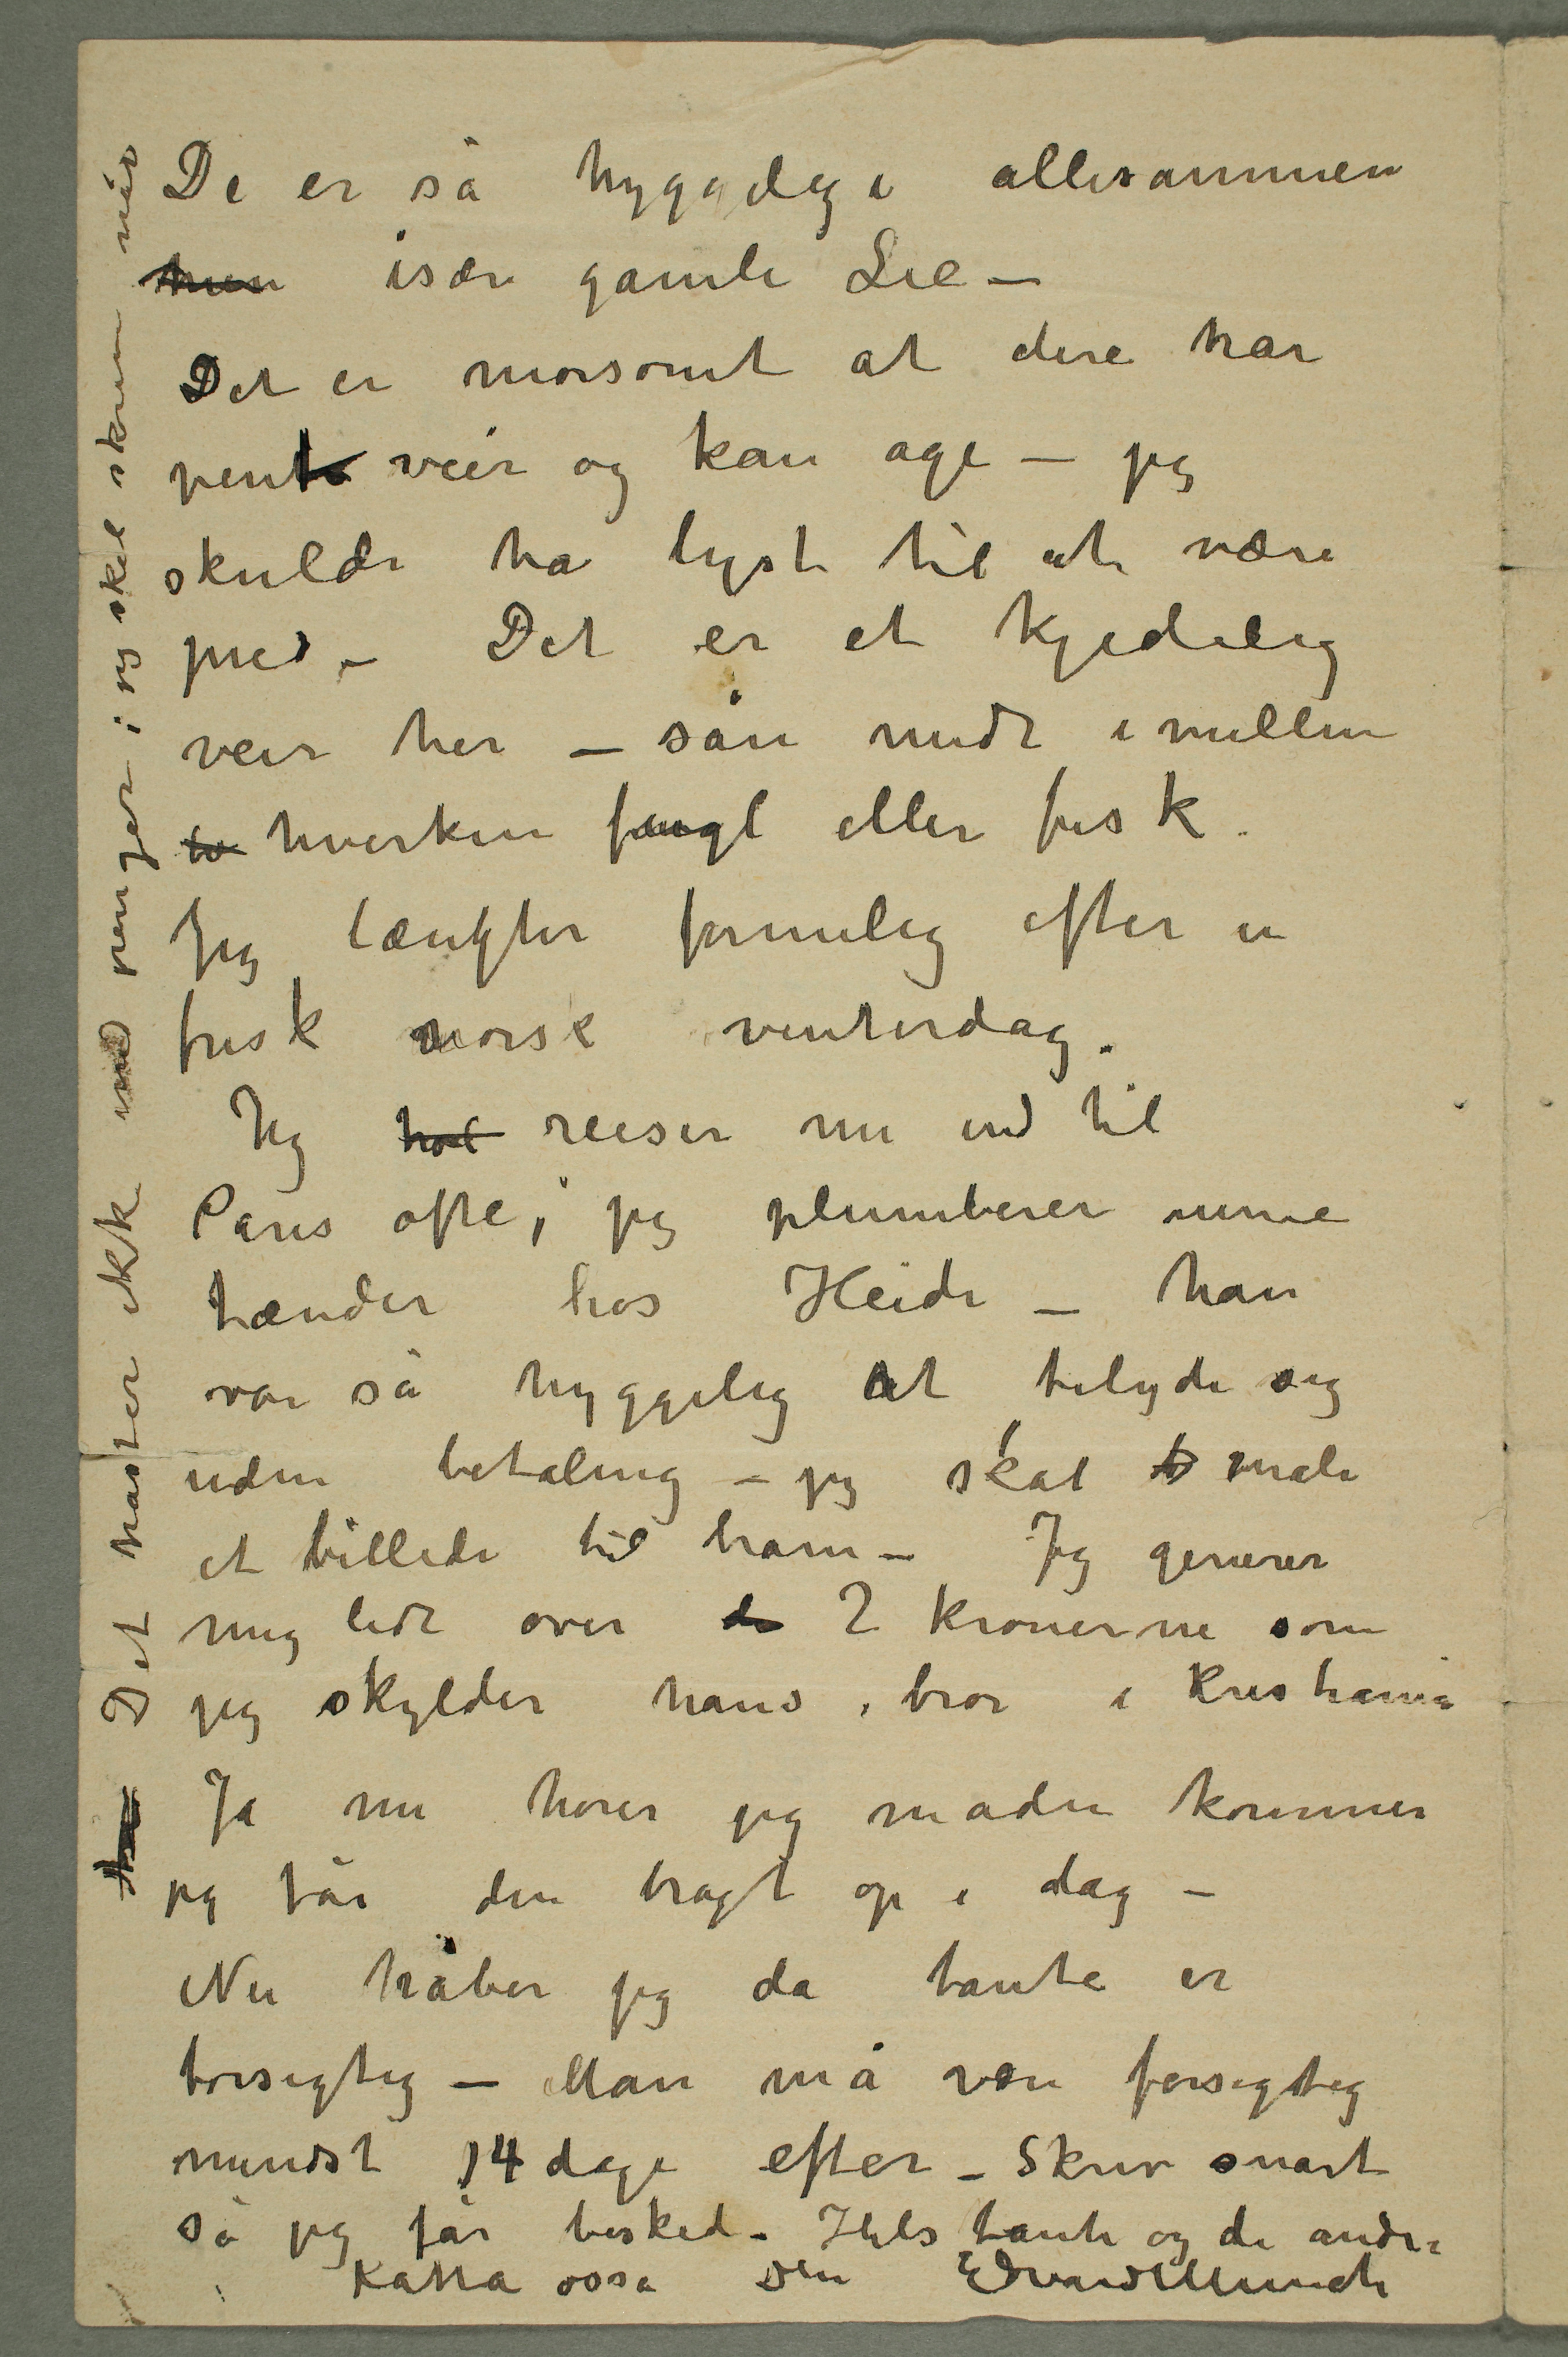 De er så hyggelige allesammen
men især gamle Lie –
Det er morsomt at dere har
pent veir og kan age – jeg
skulde ha lyst til at være
med. – Det er et kjedelig
veir her – sån midt imellem
hverken fugl eller fisk.
Jeg længter formelig efter en
frisk norsk vinterdag.
Jeg har reiser nu ind til
Paris ofte, jeg plumberer mine
tænder hos Heide – han
var så hyggelig at tilbyde sig
uden betaling – jeg skal male
et billede til ham – Jeg generer
mig lidt over de 2 kronerne som
jeg skylder hans bror i Kristiania
Ja nu hører jeg maden kommer
jeg får den bragt op i dag –
Nu håber jeg da tante er
forsigtig – Man må være forsigtig
mindst 14 dage efter – Skriv snart
så jeg får besked – Hils tante og de andre
Katta osså Din Edvard Munch
Det haster ikke med penger i jeg skal skrive når